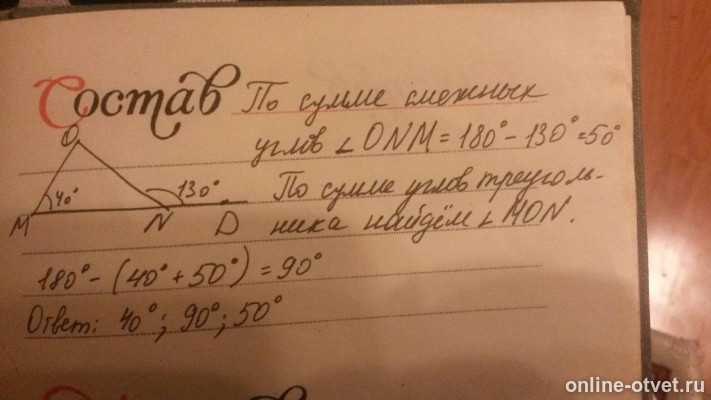 Состав По сумме смежных
углов ∠ONM = 180° - 130° = 50°
O
40° 130°
M N D
По сумме углов треуголь-
ника найдём ∠MON.
180° - (40° + 50°) = 90°
Ответ: 40°; 90°; 50°
online-otvet.ru